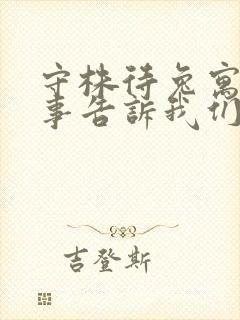 守株待兔寓
事告訴我们
吉登斯